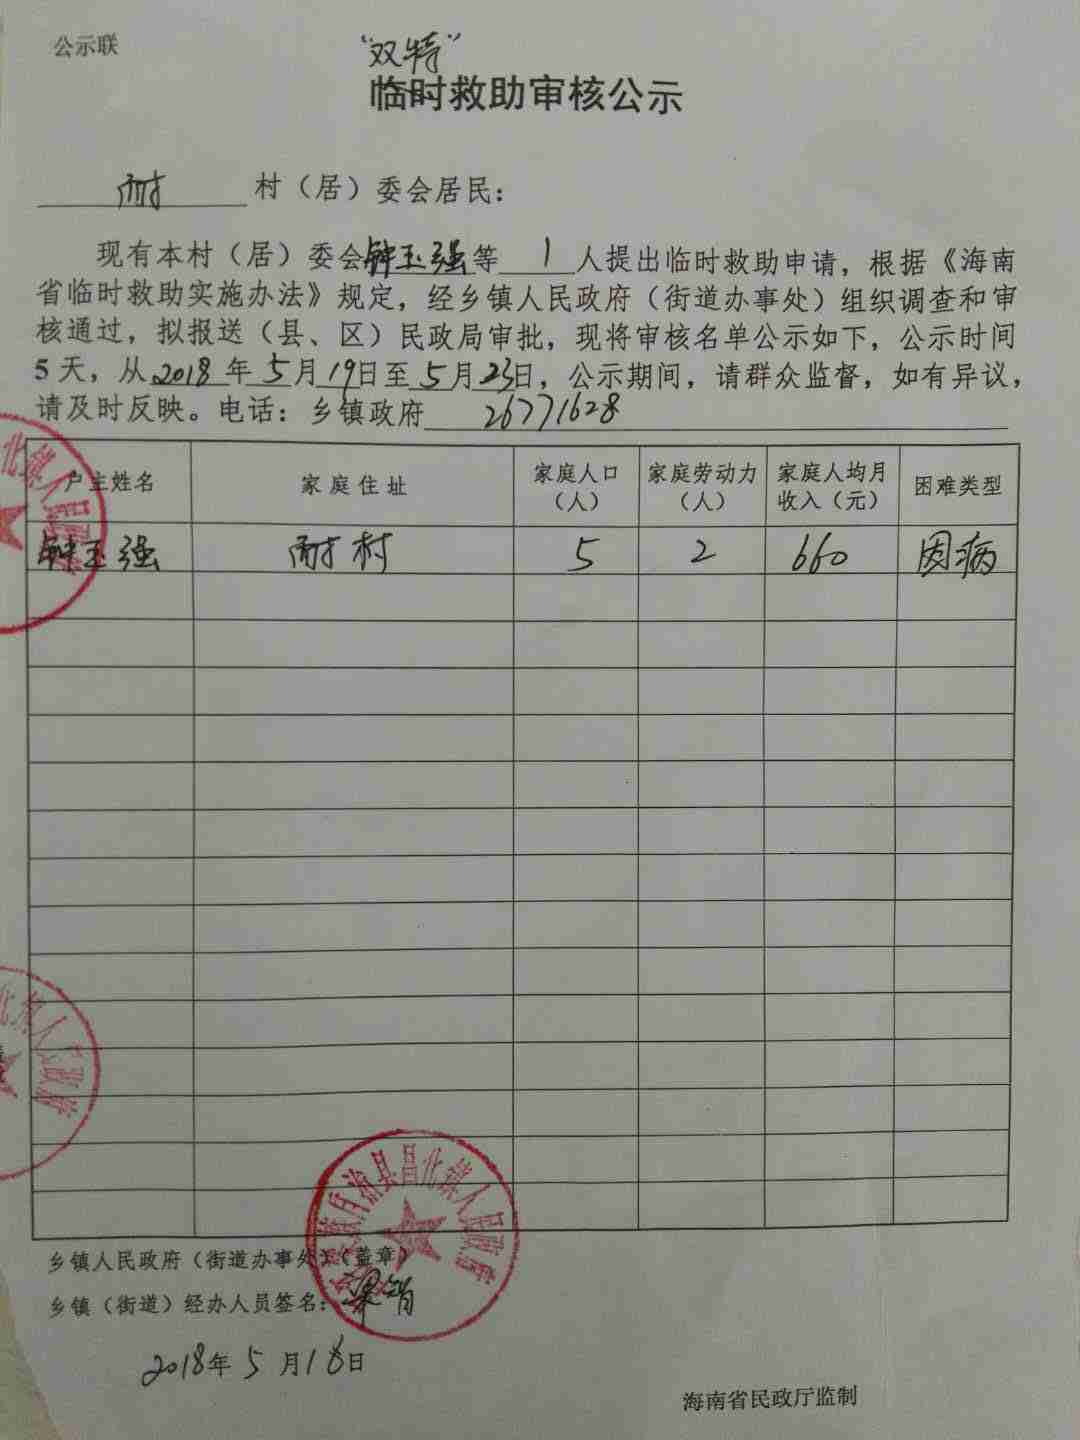 公示联
“双特”
临时救助审核公示
耐 村（居）委会居民：
现有本村（居）委会钟玉强等 1 人提出临时救助申请，根据《海南
省临时救助实施办法》规定，经乡镇人民政府（街道办事处）组织调查和审
核通过，拟报送（县、区）民政局审批，现将审核名单公示如下，公示时间
5天，从2018年5月19日至5月23日，公示期间，请群众监督，如有异议，
请及时反映。电话：乡镇政府 26771628
户主姓名 家庭住址 家庭人口（人） 家庭劳动力（人） 家庭人均月收入（元） 困难类型
钟玉强 耐村 5 2 660 因病
乡镇人民政府（街道办事处）（盖章）
乡镇（街道）经办人员签名：
2018年5月18日
海南省民政厅监制